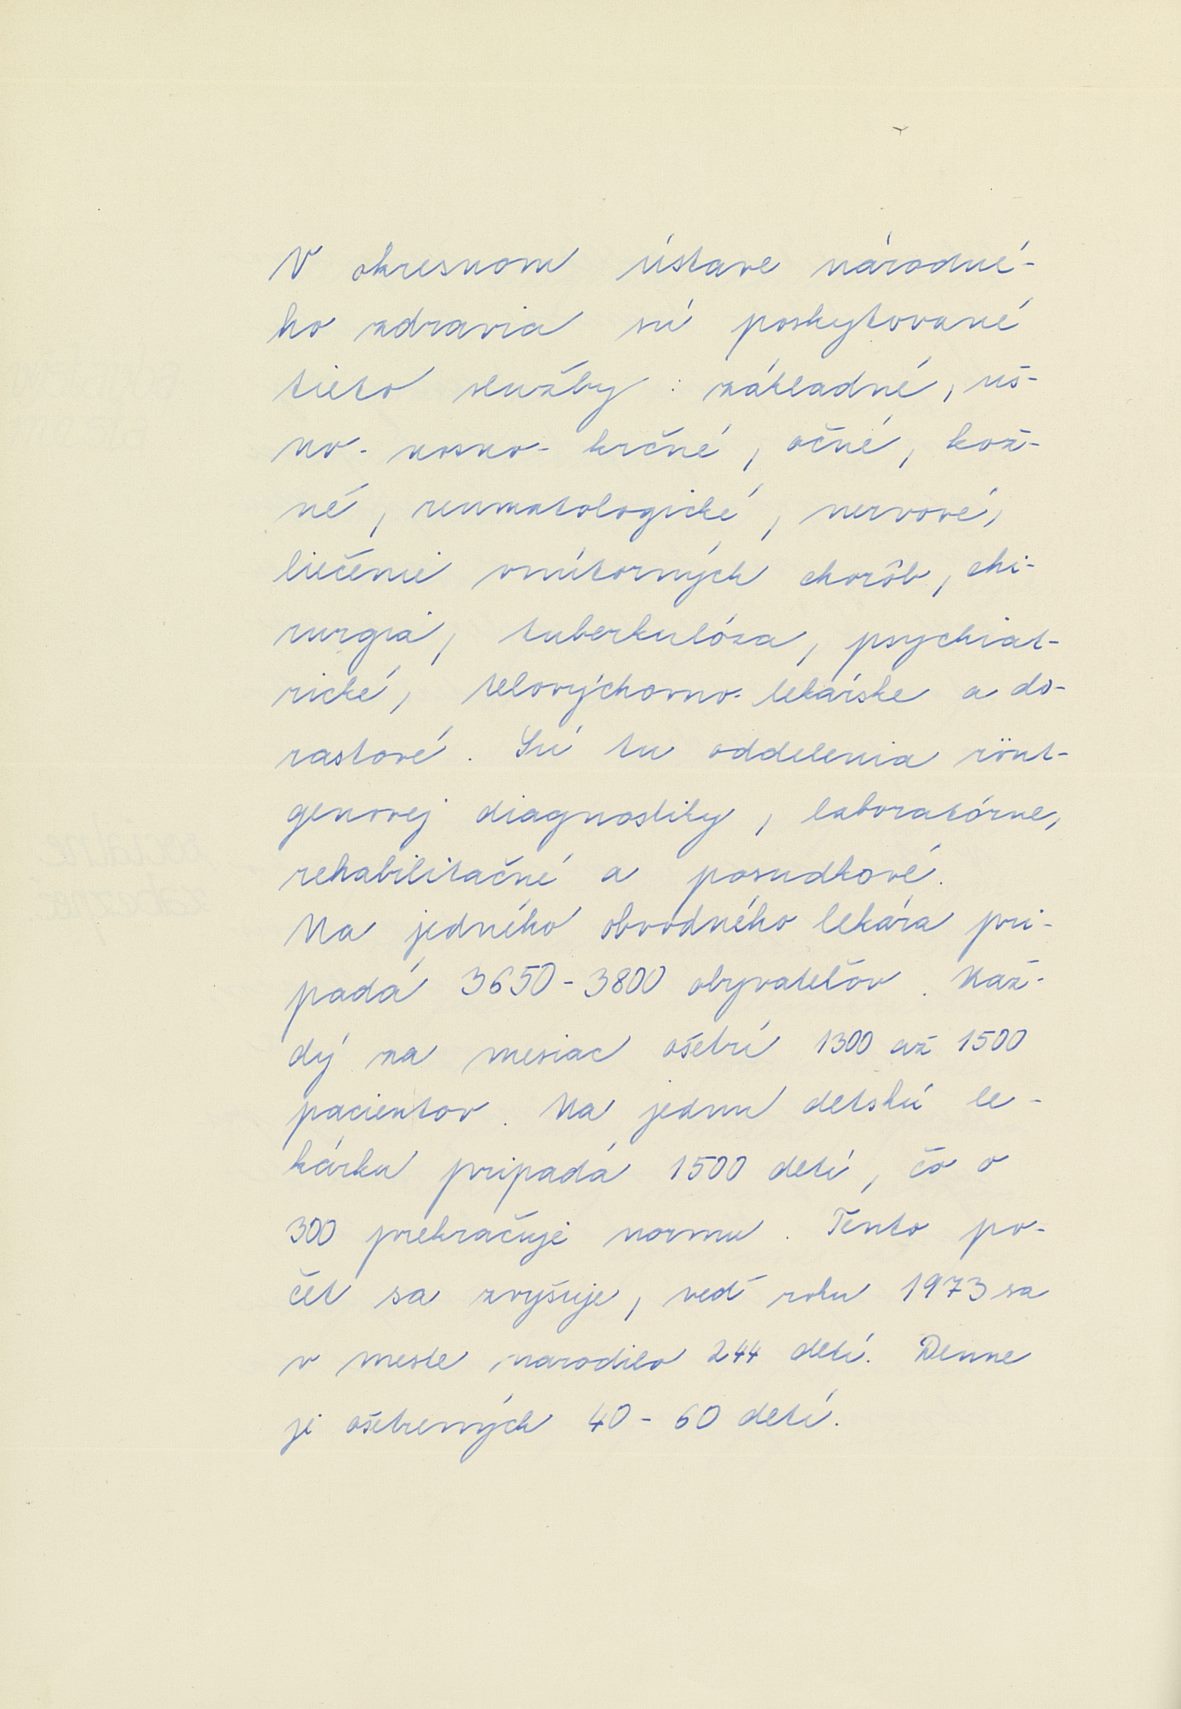 V okresnom ústave národné-
ho zdravia sú poskytované
tieto služby : základné, uš-
no- nosno- krčné, očné, kož-
né, reumatologické, nervové,
liečenie vnútorných chorôb, chi-
rurgia, tuberkulóza, psychiat-
rické, telovýchovno-lekárske a do-
rastové. Sú tu oddelenia rönt-
genovej diagnostiky, laboratórne,
rehabilitačné a posudkové.
Na jedného obvodného lekára pri-
padá 3650-3800 obyvateľov. Kaž-
dý za mesiac ošetrí 1300 až 1500
pacientov. Na jednu detskú le-
kárku pripadá 1500 detí, čo o
300 prekračuje normu. Tento po-
čet sa zvyšuje, veď roku 1973 sa
v meste narodilo 244 detí. Denne
je ošetrených 40-60 detí.